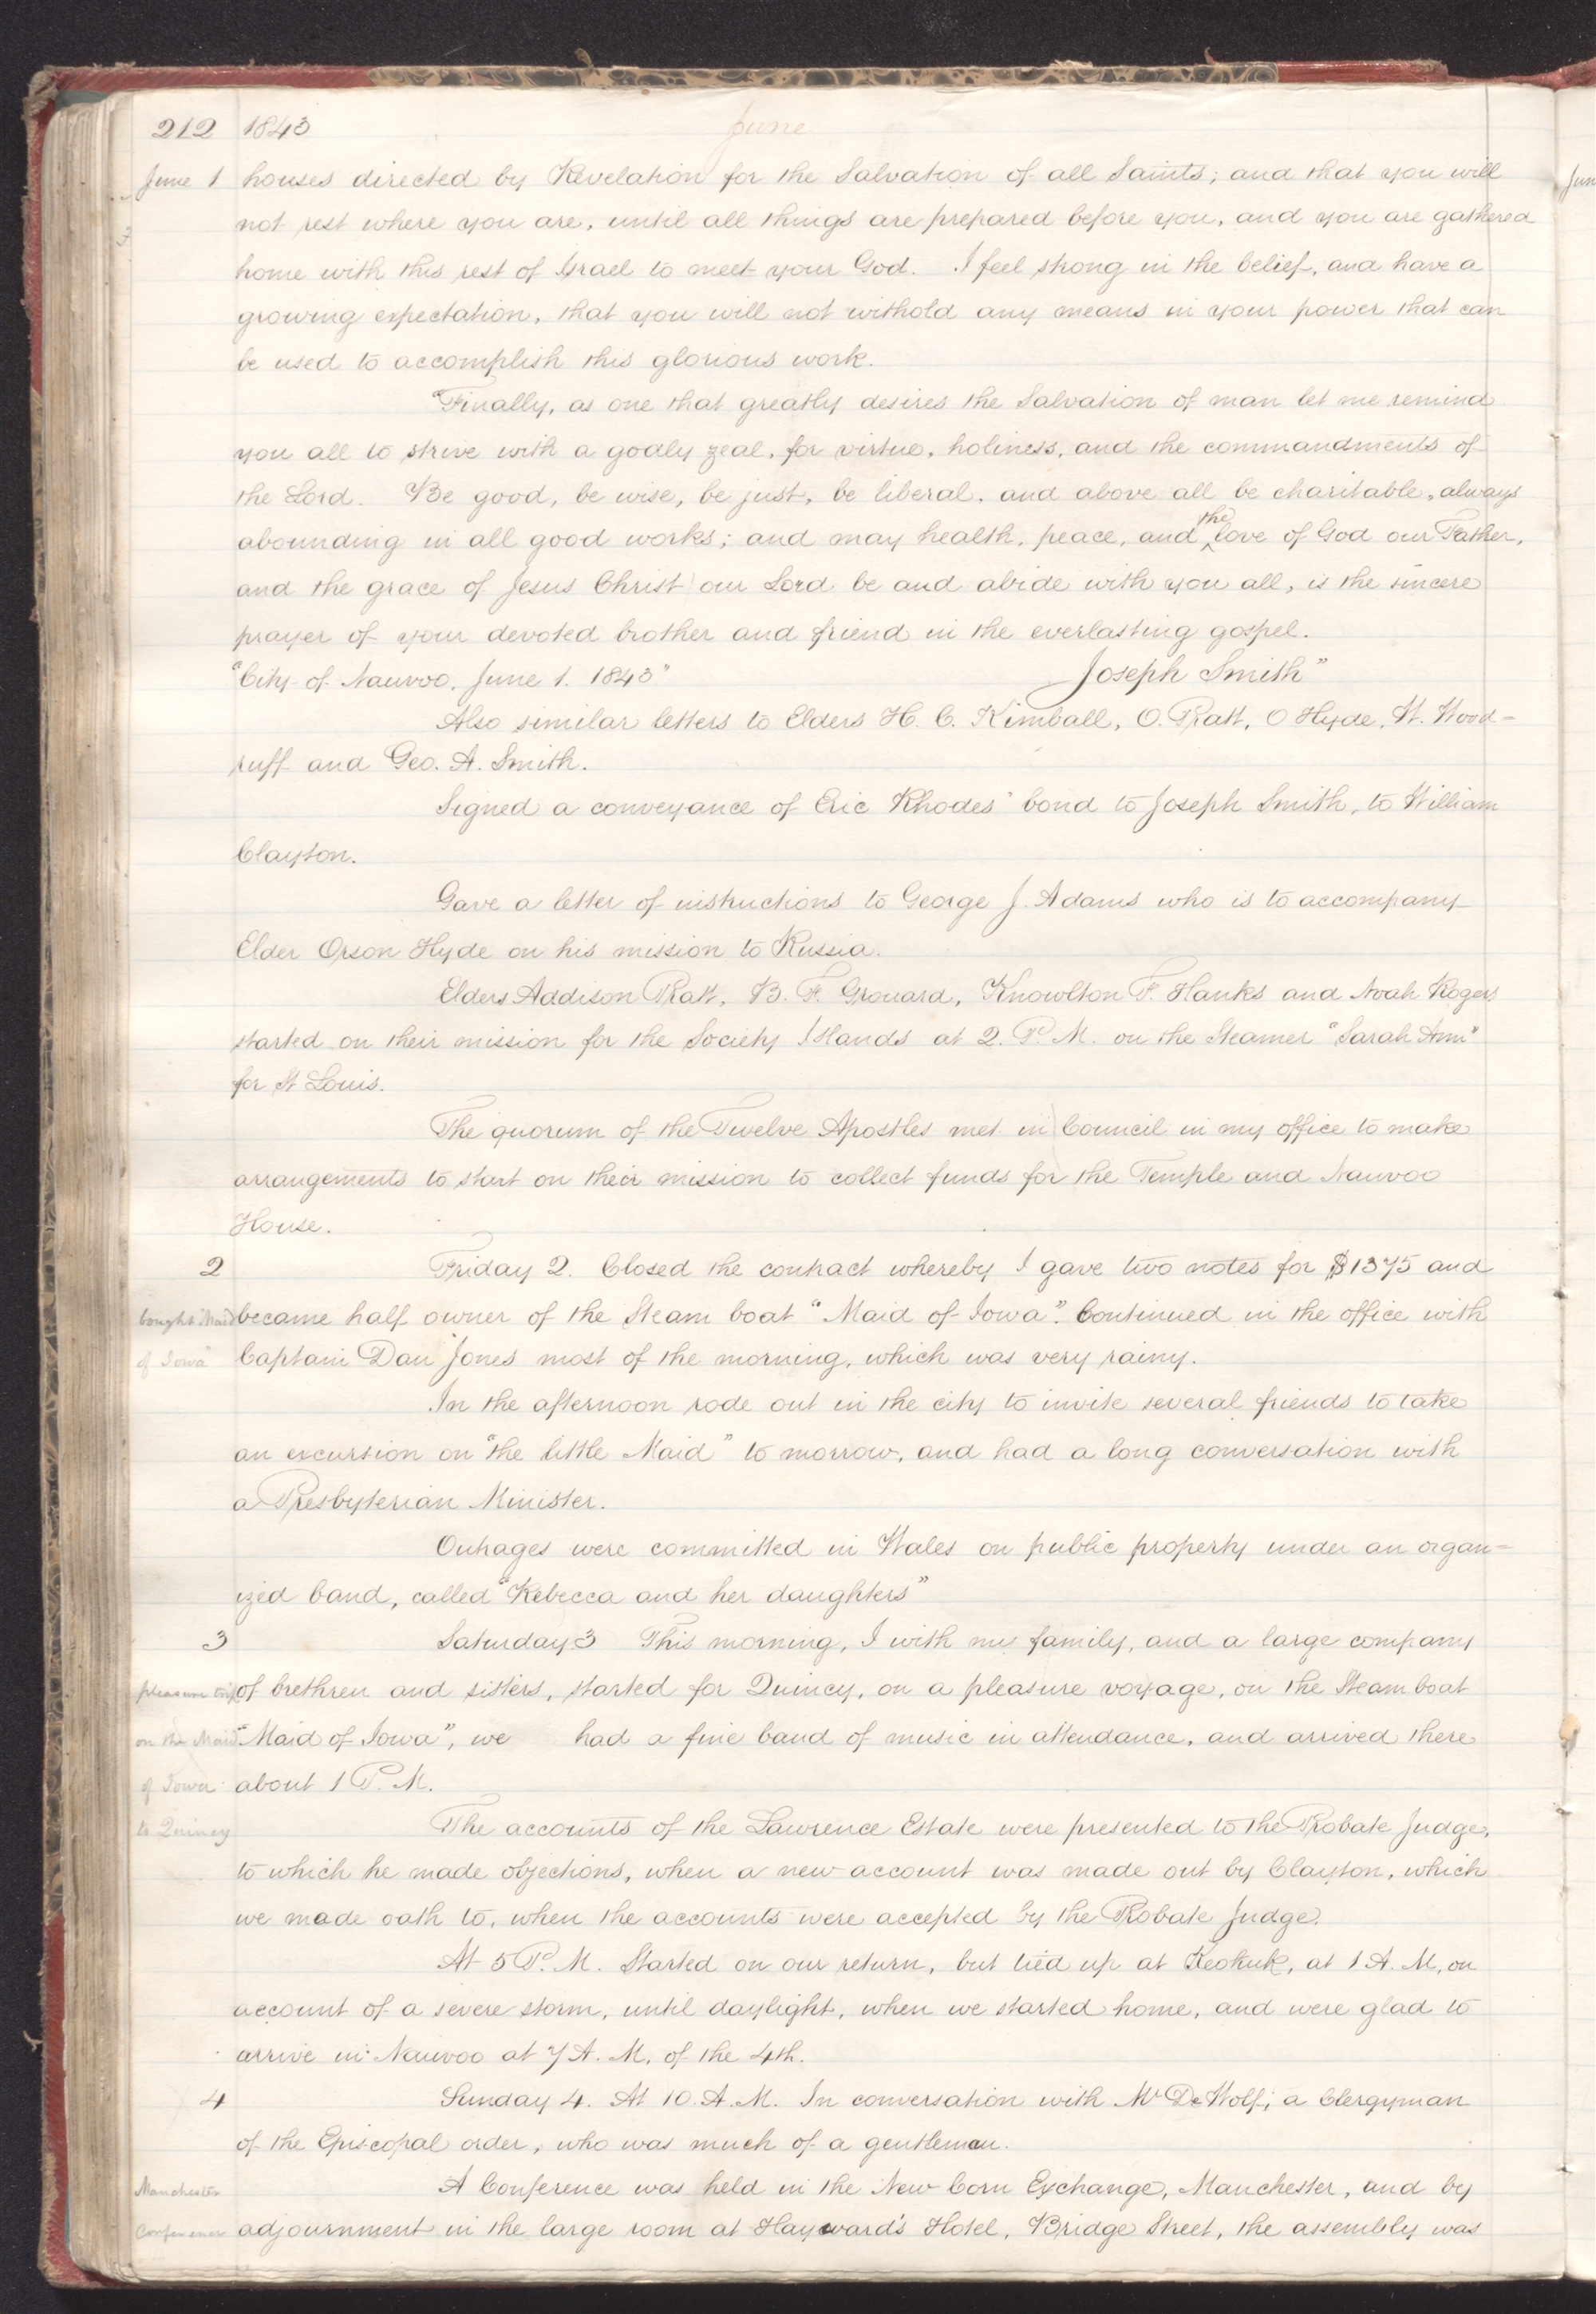 212 1843 June
June 1 houses directed by Revelation for the Salvation of all Saints; and that you will
not rest where you are, until all things are prepared before you, and you are gathered
home with this rest of Israel to meet your God. I feel strong in the belief, and have a
growing expectation, that you will not withold any means in your power that can
be used to accomplish this glorious work.
"Finally, as one that greatly desires the Salvation of man let me remind
you all to strive with a godly zeal, for virtue, holiness, and the commandments of
the Lord. Be good, be wise, be just, be liberal, and above all be charitable, always
abounding in all good works; and may health, peace, and the love of God our Father,
and the grace of Jesus Christ our Lord be and abide with you all, is the sincere
prayer of your devoted brother and friend in the everlasting gospel.
"City of Nauvoo, June 1. 1843" Joseph Smith"
Also similar letters to Elders H. C. Kimball, O. Pratt, O Hyde, W. Wood-
ruff and Geo. A. Smith.
Signed a conveyance of Eric Rhodes' bond to Joseph Smith, to William
Clayton.
Gave a letter of instructions to George J. Adams who is to accompany
Elder Orson Hyde on his mission to Russia.
Elders Addison Pratt, B. F. Grouard, Knowlton F. Hanks and Noah Rogers
started on their mission for the Society Islands at 2. P. M. on the Steamer "Sarah Ann"
for St Louis.
The quorum of the Twelve Apostles met in Council in my office to make
arrangements to start on their mission to collect funds for the Temple and Nauvoo
House.
2 Friday 2. Closed the contract whereby I gave two notes for $1375 and
bought "Maid became half owner of the Steam boat "Maid of Iowa". Continued in the office with
of Iowa" Captain Dan Jones most of the morning, which was very rainy.
In the afternoon rode out in the city to invite several friends to take
an excursion on "the little Maid" to morrow, and had a long conversation with
a Presbyterian Minister.
Outrages were committed in Wales on public property under an organ-
ized band, called "Rebecca and her daughters"
3 Saturday 3 This morning, I with my family, and a large company
pleasure trip of brethren and sisters, started for Quincy, on a pleasure voyage, on the Steam boat
on the Maid "Maid of Iowa", we had a fine band of music in attendance, and arrived there
of Iowa about 1 P. M.
to Quincy The accounts of the Lawrence Estate were presented to the Probate Judge,
to which he made objections, when a new account was made out by Clayton, which
we made oath to, when the accounts were accepted by the Probate Judge.
At 5 P. M. Started on our return, but tied up at Keokuk, at 1 A. M, on
account of a severe storm, until daylight, when we started home, and were glad to
arrive in Nauvoo at 7 A. M. of the 4th.
4 Sunday 4. At 10. A. M. In conversation with Mr De Wolf; a Clergyman
of the Episcopal order, who was much of a gentleman.
Manchester A Conference was held in the New Corn Exchange, Manchester, and by
Conference adjournment in the large room at Hayward's Hotel, Bridge Street, the assembly was